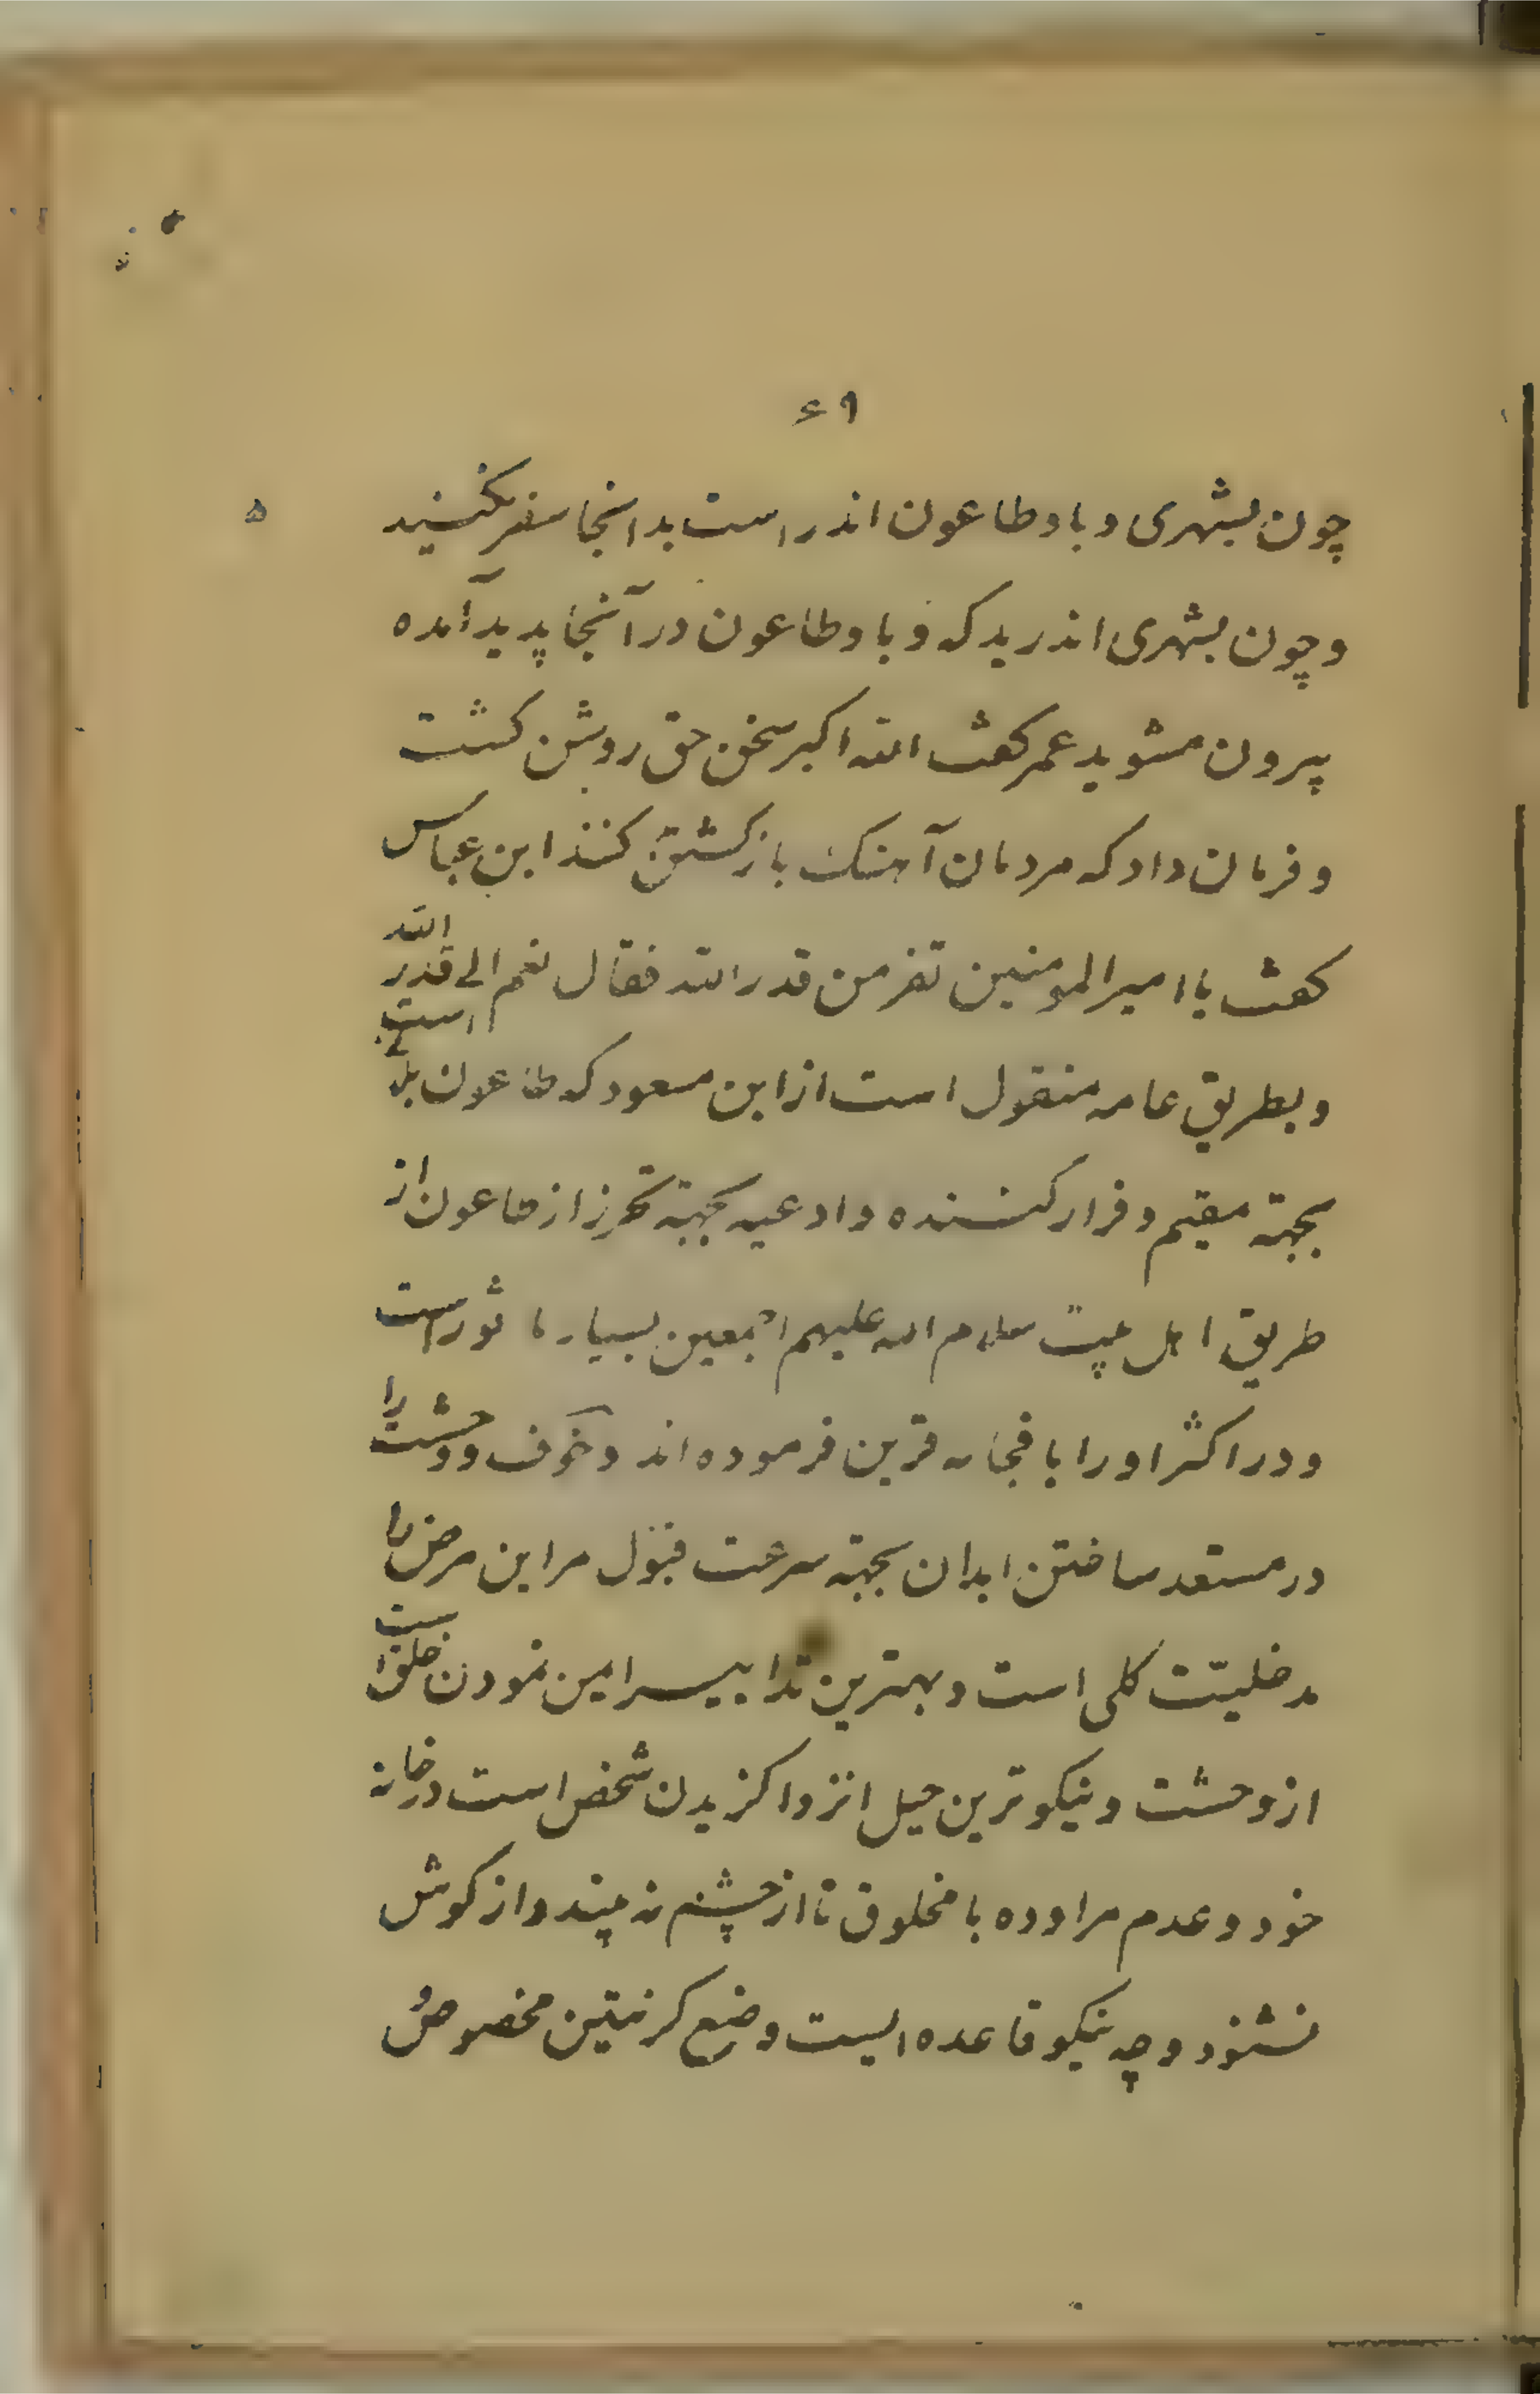 ۶۹
چون بشهری وبا و طاعون اندر است بدانجا سفر نکنید
و چون بشهری اندرید که وبا و طاعون در آنجا پدید آمده
بیرون مشوید عمر کفت الله اکبر سخن حق روشن کشت
و فرمان داد که مردمان آهنک بازکشتن کنند ابن عباس
کفت یا امیرالمومنین تفر من قدر الله فقال نعم الی قدر الله
و بطریق عامه منقول است از ابن مسعود که طاعون بلائی است
بجهة مقیم و فرار کننده و ادعیه بجهة تحرز از طاعون از
طریق اهل بیت سلام الله علیهم اجمعین بسیار ماثور است
و در اکثر او را با فجاه قرین فرموده اند و خوف و وحشت را
در مستعد ساختن ابدان بجهة سرعت قبول مر این مرض را
مدخلیّت کلی است و بهترین تدابیر امین نمودن خلق است
از وحشت و نیکوترین حیل انزوا کزیدن شخص است در خانه
خود و عدم مراوده با مخلوق تا از چشم نه بیند و از کوش
نشنود و چه نیکو قاعده ایست وضع کرنتین مخصوص